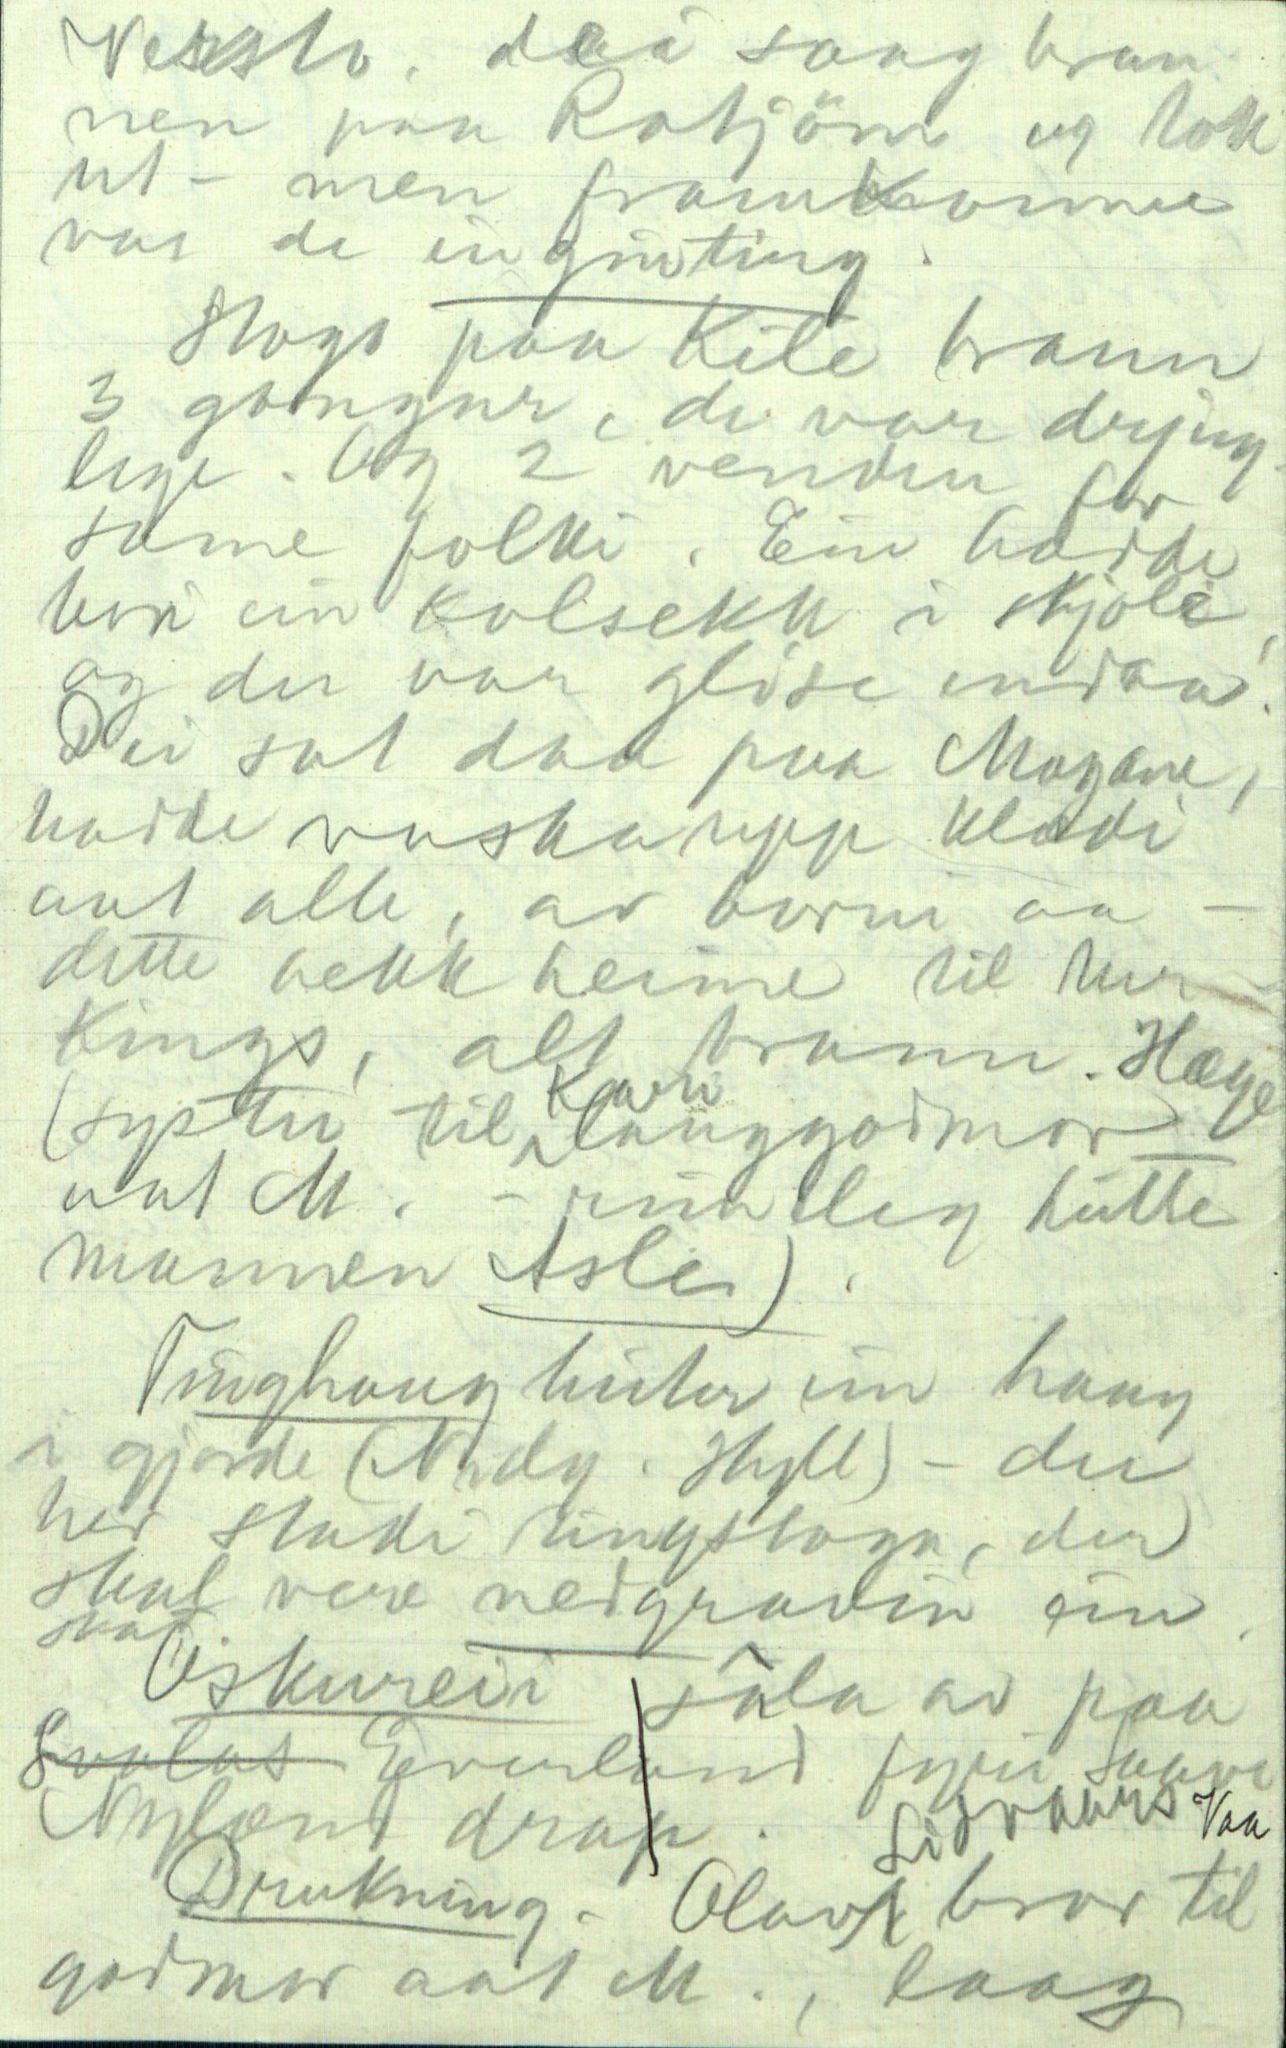 Vessto. deei saag bran
nen paa Rotjönn og tok
ut - men framkomne
var de ingïnting.
Stoga paa Kile brann
3 gongur, de var dryjug
lege. Og 2 vendur for
same folki. Ein hadde
bori ein kolsekk i skjole,
og der var glöse endaa.
Dei sat daa paa Mogane,
hadde vaska upp klædi
aat alle, av borni aa -
dette hekk heime til tur
kings, alt brann. Hæge
(syster til Kari langgodmor
aat M. - rinileg hitte
mannen Asle).
Tinghaug heiter ein haug
i gjorde (Nrdg. Skyll) - der
her stadi tingstoga, der
skal vere nedgravin ein
skat
Oskureii såla av paa
Svalas Everland fyrir Saave
Nylænd drap.
Drukning. Olav Sidraaks Vaa bror til
godmor aat M., laag